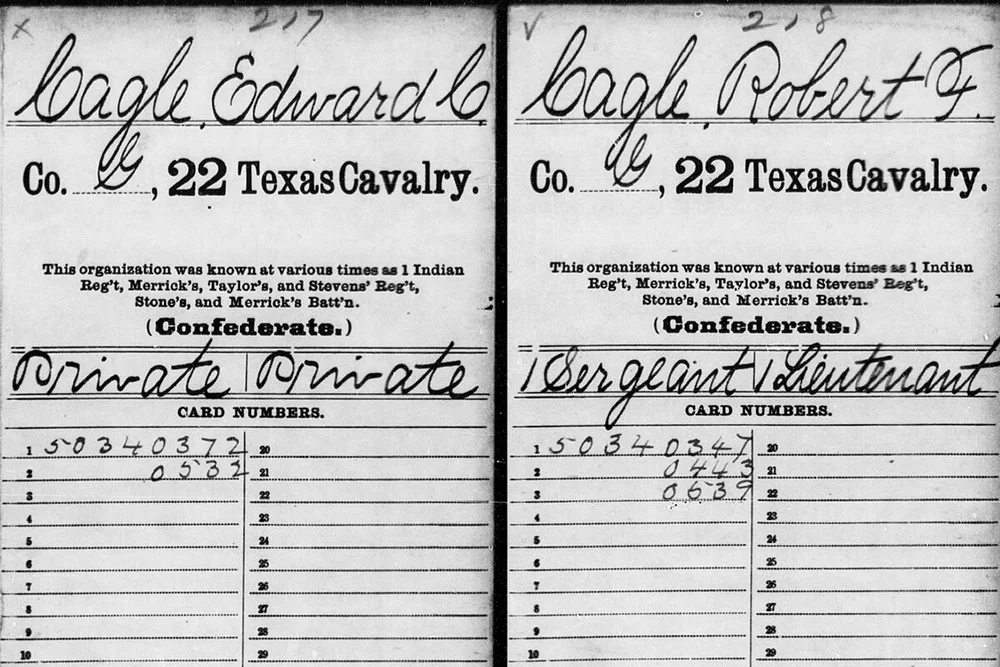 x 217
Cagle, Edward C.
Co. G, 22 Texas Cavalry.
This organization was known at various times as 1 Indian
Reg't, Merrick's, Taylor's, and Stevens' Reg't,
Stone's, and Merrick's Batt'n.
(Confederate.)
Private | Private
CARD NUMBERS.
1 50340372 20
2 0532 21
3 22
4 23
5 24
6 25
7 26
8 27
9 28
10 29
√ 218
Cagle, Robert F.
Co. G, 22 Texas Cavalry.
This organization was known at various times as 1 Indian
Reg't, Merrick's, Taylor's, and Stevens' Reg't,
Stone's, and Merrick's Batt'n.
(Confederate.)
1 Sergeant | 1 Lieutenant
CARD NUMBERS.
1 50340347 20
2 0443 21
3 0639 22
4 23
5 24
6 25
7 26
8 27
9 28
10 29